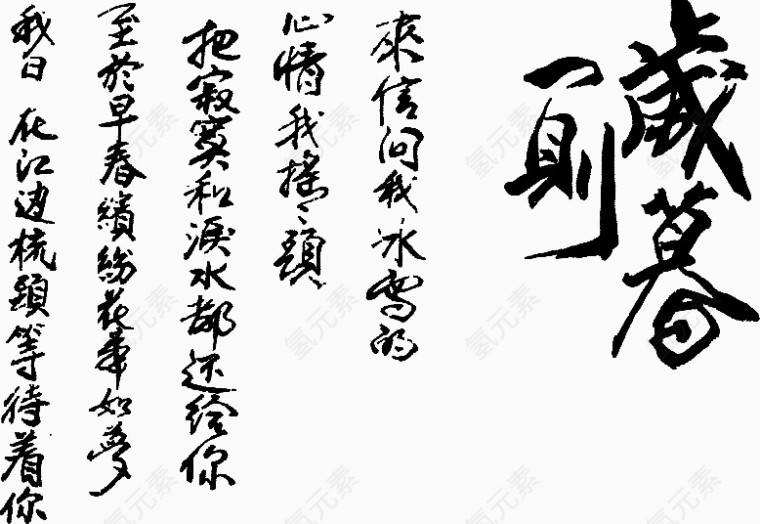 歲暮
一則
來信問我冰雪的
心情我搖搖頭
把寂寞和淚水都還給你
至於早春繽紛花事如夢
我日在江边梳頭等待着你
氢元素